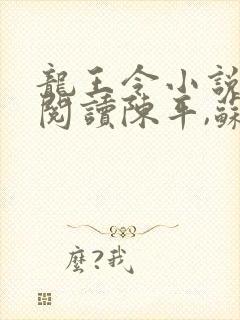 龍王令小說
閱讀陳平,蘇
麼?我